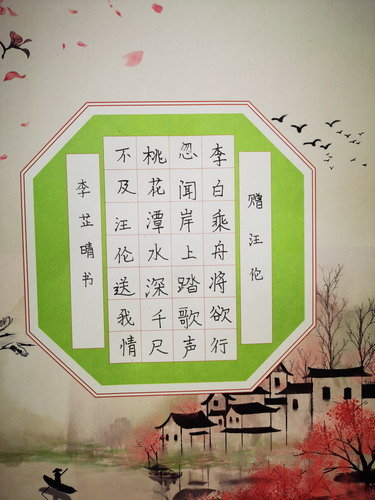 赠汪伦
李白乘舟将欲行
忽闻岸上踏歌声
桃花潭水深千尺
不及汪伦送我情
李芷晴书